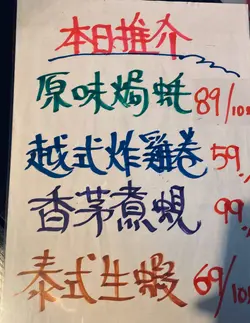 本日推介
原味焗蚝 89/10
越式炸雞卷 59
香茅煮蜆 99
泰式生蝦 69/10